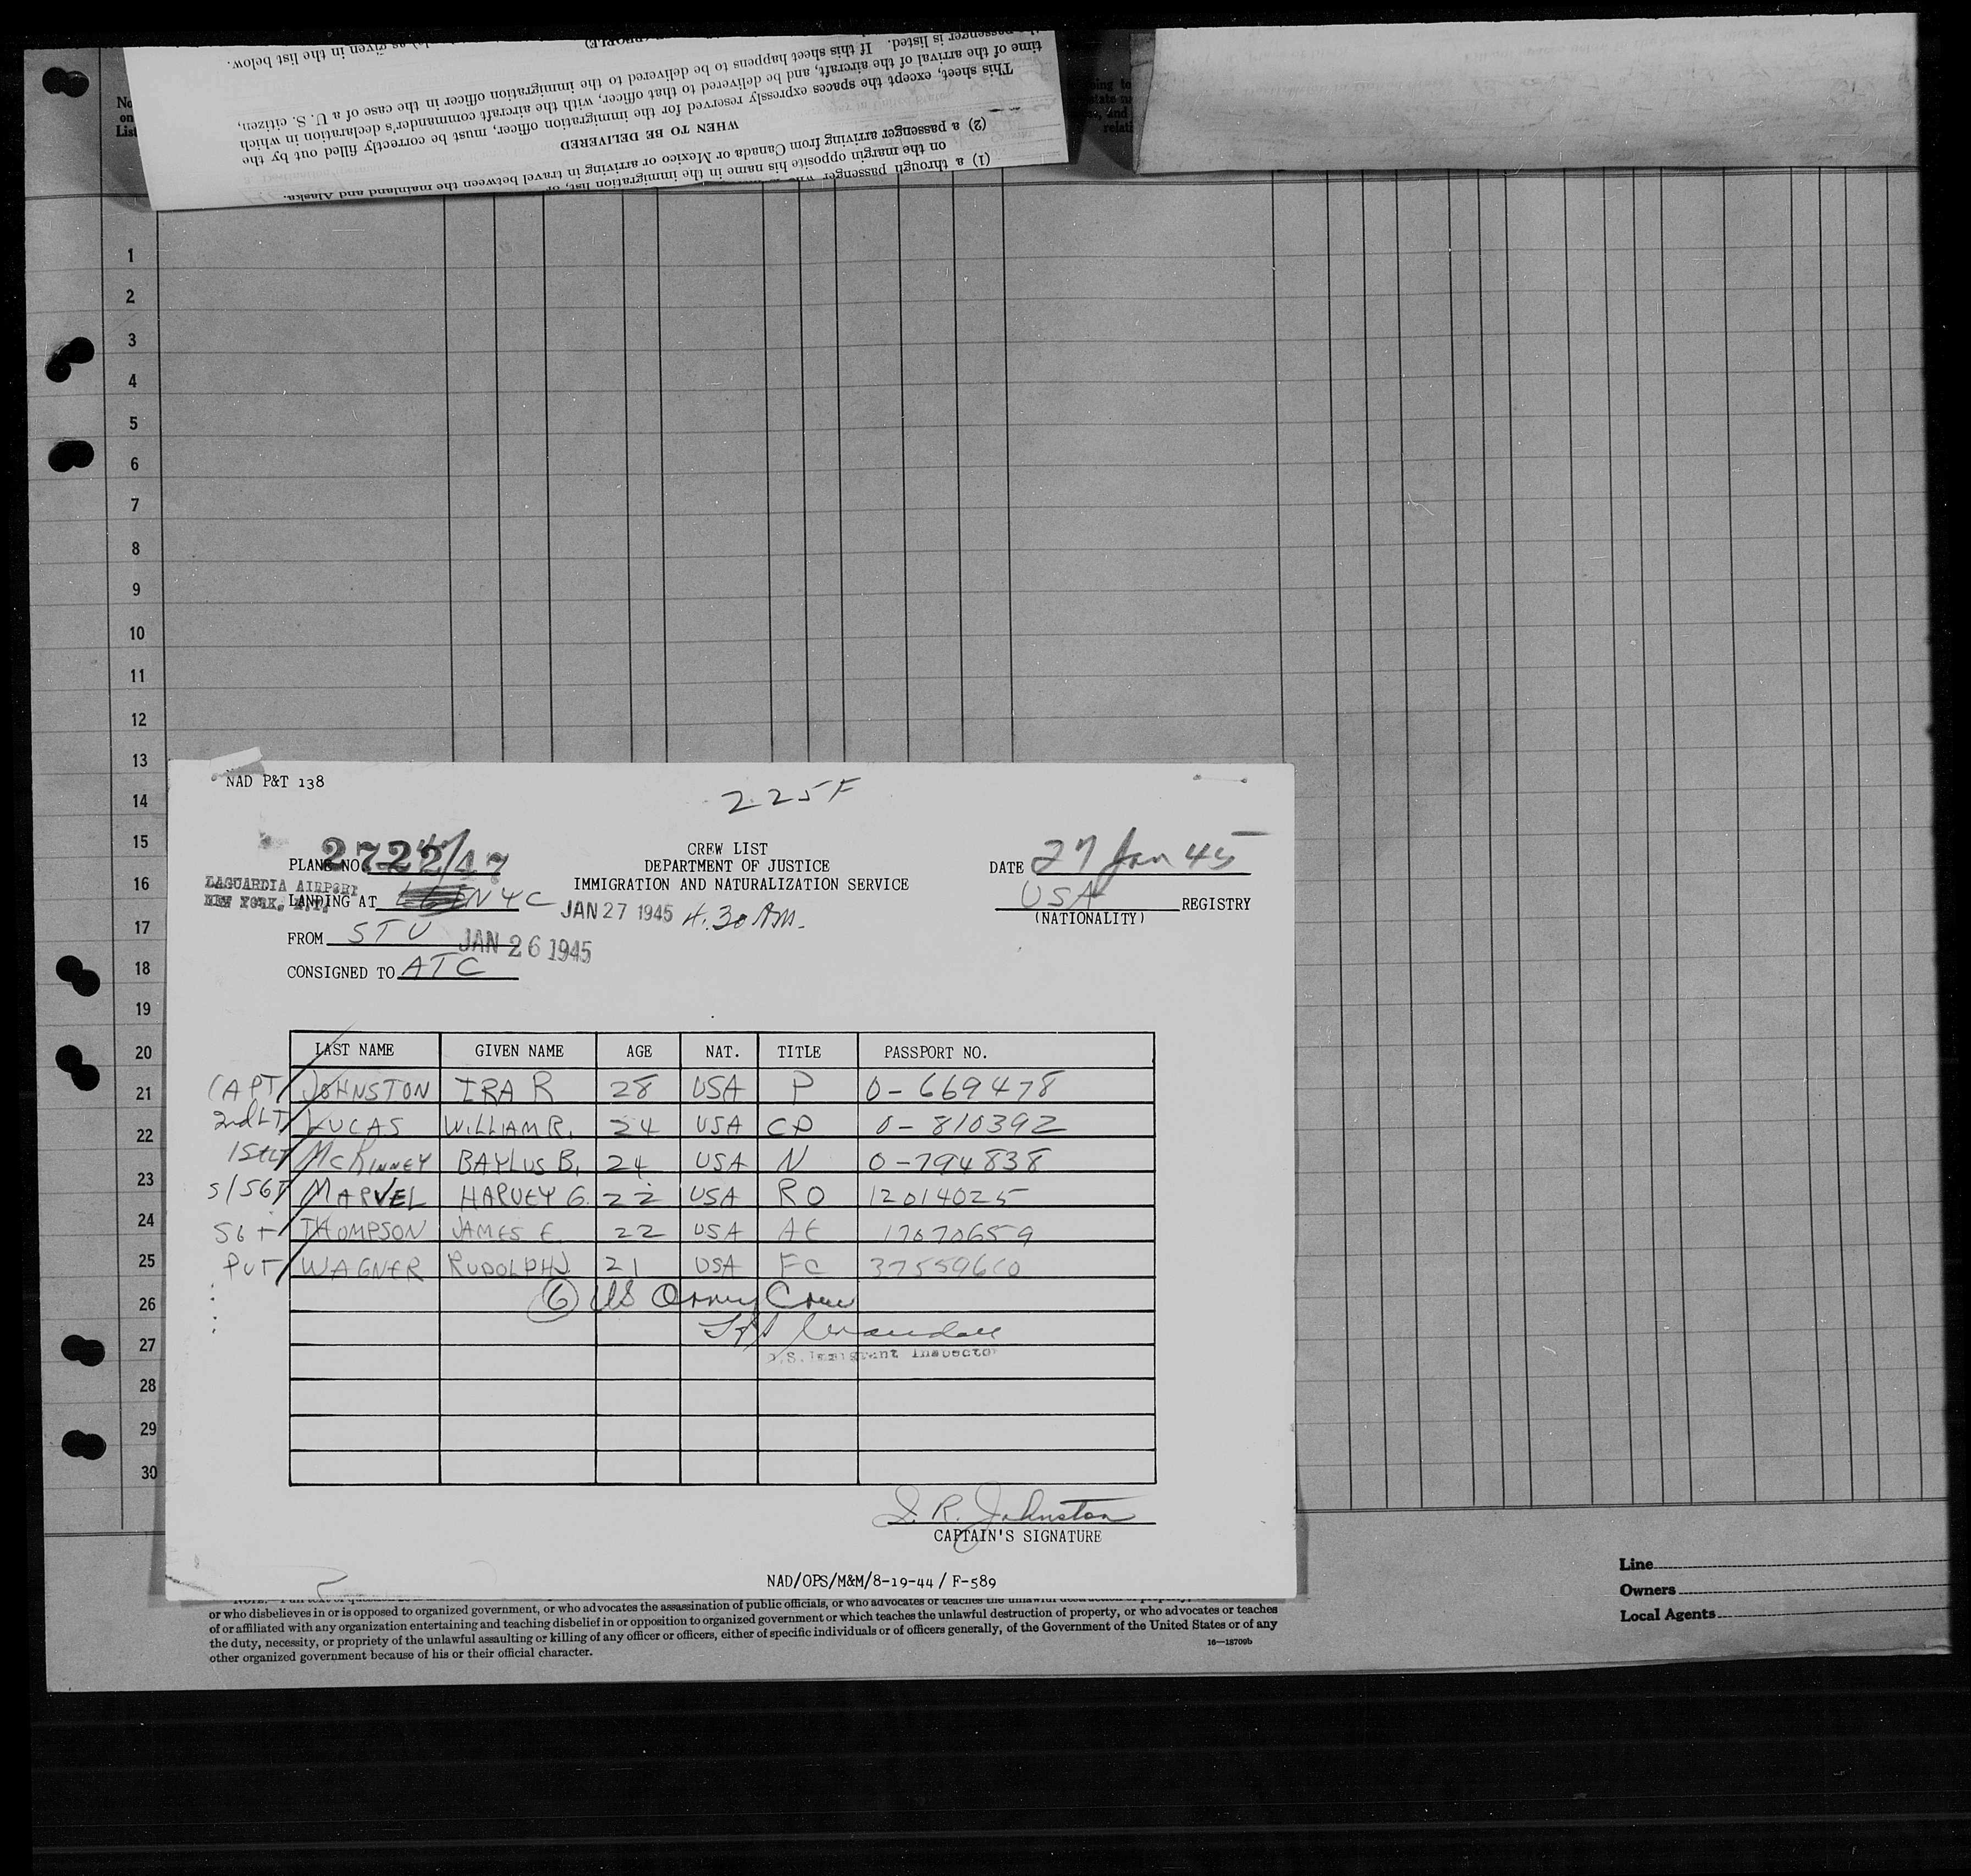 as given in the list below.
passenger is listed. If this sheet happens to be delivered to the immigration officer in the case of a U. S. citizen,
time of the arrival of the aircraft, and be delivered to that officer, with the aircraft commander's declaration in which
This sheet, except the spaces expressly reserved for the immigration officer, must be correctly filled out by the
WHEN TO BE DELIVERED
(2) a passenger arriving from Canada or Mexico or arriving in travel between the mainland and Alaska.
on the margin opposite his name in the immigration list, or
(1) a through passenger
No
on
List
1
2
3
4
5
6
7
8
9
10
11
12
13
14
15
16
17
18
19
20
21
22
23
24
25
26
27
28
29
30
NAD P&T 138
2.25F
PLANE NO. 2722/17
CREW LIST
DEPARTMENT OF JUSTICE
IMMIGRATION AND NATURALIZATION SERVICE
DATE 27 Jan 45
LAGUARDIA AIRPORT
NEW YORK, N.Y.
LANDING AT NYC
JAN 27 1945 4.30 AM.
USA REGISTRY
(NATIONALITY)
FROM STU JAN 26 1945
CONSIGNED TO ATC
LAST NAME GIVEN NAME AGE NAT. TITLE PASSPORT NO.
CAPT JOHNSTON IRA R 28 USA P 0-669478
2nd LT LUCAS WILLIAM R. 24 USA CP 0-810392
1st LT McKINNEY BAYLUS B. 24 USA N 0-794838
S/SGT MARVEL HARVEY G. 22 USA RO 12014025
SGT THOMPSON JAMES E. 22 USA AE 17070659
PVT WAGNER RUDOLPH J 21 USA FC 37559610
6 US Army Crew
U.S. Immigrant Inspector
I. R. Johnston
CAPTAIN'S SIGNATURE
NAD/OPS/M&M/8-19-44/F-589
or who disbelieves in or is opposed to organized government, or who advocates the assassination of public officials, or who advocates or teaches the unlawful destruction of property,
of or affiliated with any organization entertaining and teaching disbelief in or opposition to organized government or which teaches the unlawful destruction of property, or who advocates or teaches
the duty, necessity, or propriety of the unlawful assaulting or killing of any officer or officers, either of specific individuals or of officers generally, of the Government of the United States or of any
other organized government because of his or their official character.
16—18709b
Line
Owners
Local Agents